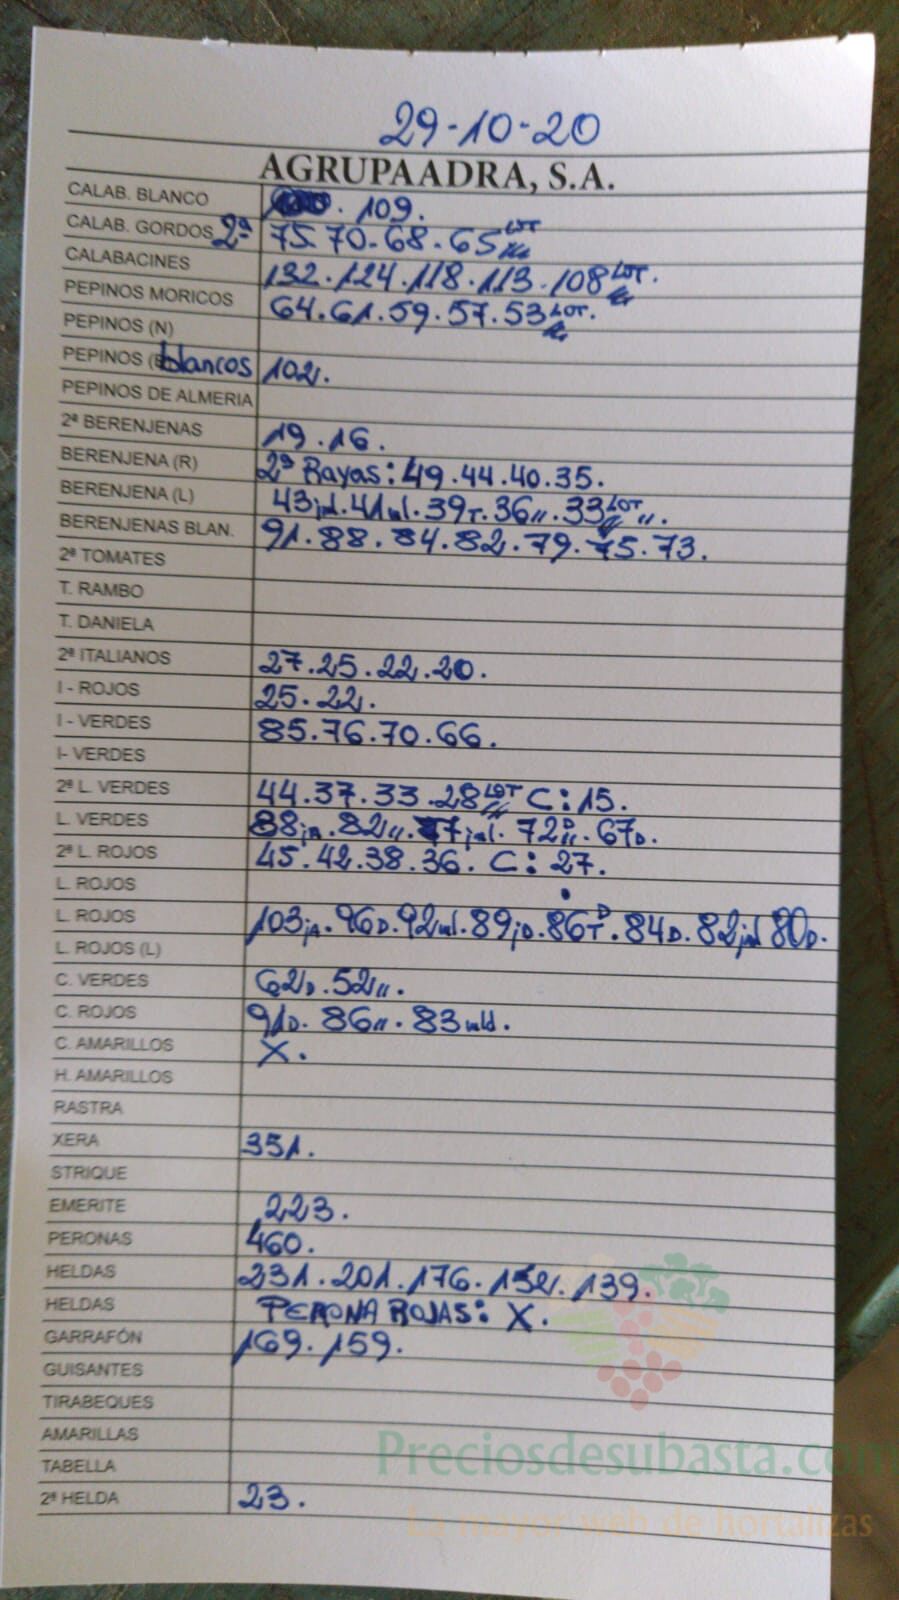 29-10-20
AGRUPAADRA, S.A.
CALAB. BLANCO . 109.
CALAB. GORDOS 2ª 75.70.68.65 LOT
CALABACINES 132.124.118.113.108 LOT.
PEPINOS MORICOS 64.61.59.57.53 LOT.
PEPINOS (N)
PEPINOS ( blancos 102.
PEPINOS DE ALMERIA
2ª BERENJENAS 19.16.
BERENJENA (R) 2ª Rayas: 49.44.40.35.
BERENJENA (L) 43 .41 .39T.36".33 LOT".
BERENJENAS BLAN. 91.88.84.82.79.75.73.
2ª TOMATES
T. RAMBO
T. DANIELA
2ª ITALIANOS 27.25.22.20.
I - ROJOS 25.22.
I - VERDES 85.76.70.66.
I- VERDES
2ª L. VERDES 44.37.33.28 LOT C: 15.
L. VERDES 88jA.82".77 .72D".67D.
2ª L. ROJOS 45.42.38.36. C: 27.
L. ROJOS
L. ROJOS 103jA.96D.92 .89jD.86TD.84D.82 80D.
L. ROJOS (L)
C. VERDES 62D.52".
C. ROJOS 91D.86".83 .
C. AMARILLOS X.
H. AMARILLOS
RASTRA
XERA 351.
STRIQUE
EMERITE 223.
PERONAS 460.
HELDAS 231.201.176.152.139.
HELDAS PERONA ROJAS: X.
GARRAFÓN 169.159.
GUISANTES
TIRABEQUES
AMARILLAS
TABELLA
2ª HELDA 23.
Preciosdesubasta.com
La mayor web de hortalizas